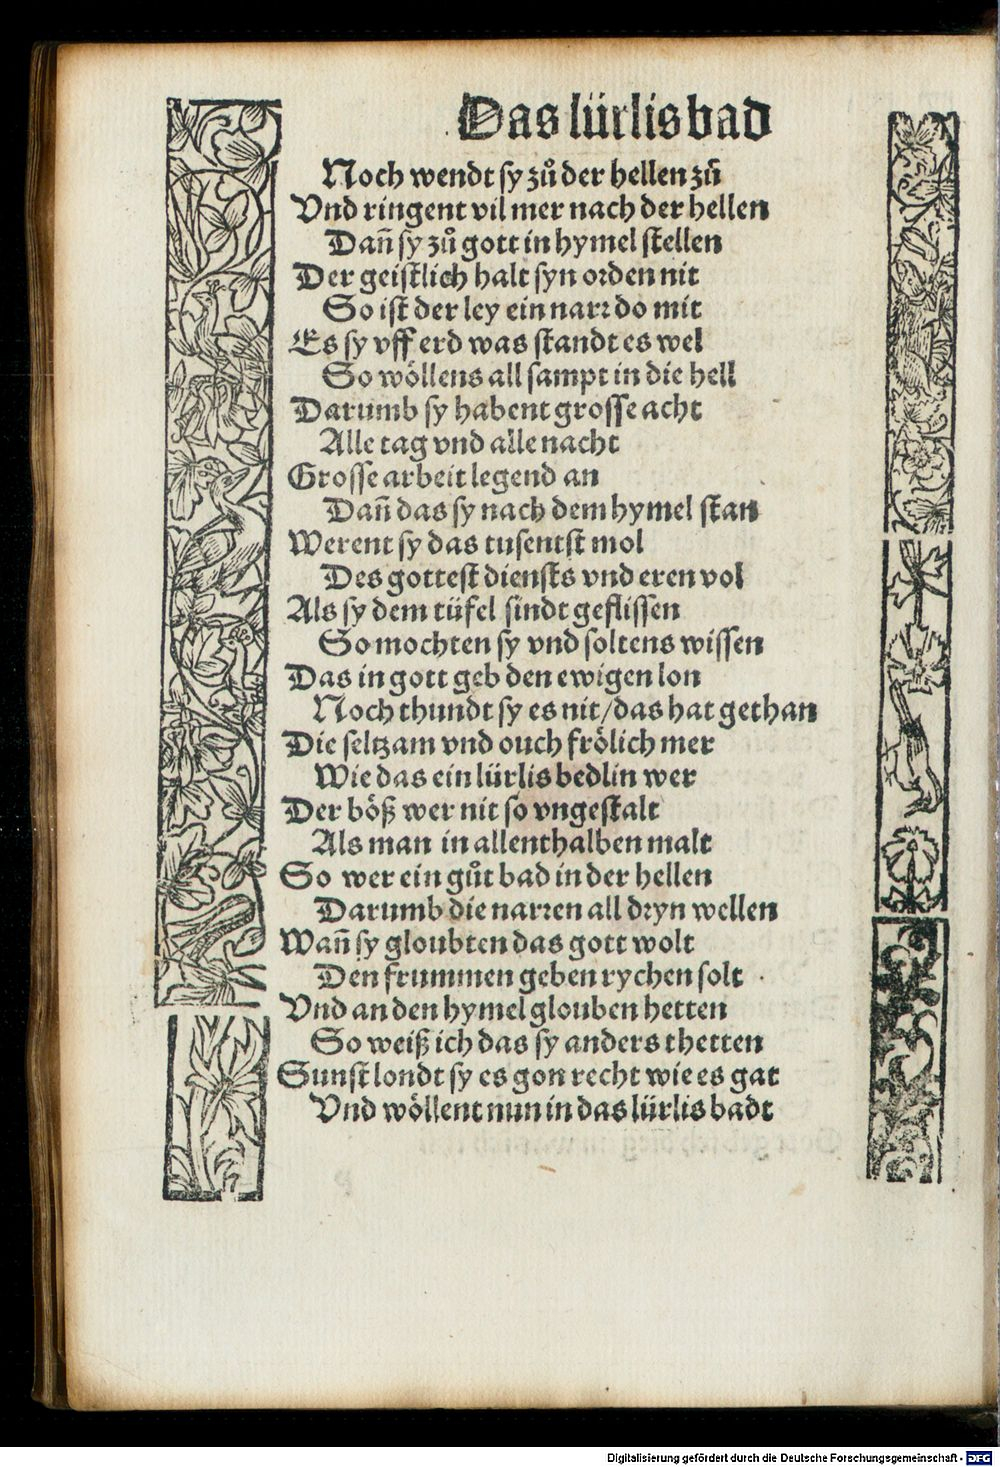 Das lürlis bad
Noch wendt sy zů der hellen zů
Vnd ringent vil mer nach der hellen
Dañ sy zů gott in hymel stellen
Der geistlich halt syn orden nit
So ist der ley ein narꝛ do mit
Es sy vff erd was standt es wel
So wöllens all sampt in die hell
Darumb sy habent grosse acht
Alle tag vnd alle nacht
Grosse arbeit legend an
Dañ das sy nach dem hymel stan
Werent sy das tusentst mol
Des gottest diensts vnd eren vol
Als sy dem tüfel sindt geflissen
So mochten sy vnd soltens wissen
Das in gott geb den ewigen lon
Noch thundt sy es nit/das hat gethan
Die seltzam vnd ouch frölich mer
Wie das ein lürlis bedlin wer
Der böß wer nit so vngestalt
Als man in allenthalben malt
So wer ein gůt bad in der hellen
Darumb die narꝛen all dꝛyn wellen
Wañ sy gloubten das gott wolt
Den frummen geben rychen solt
Vnd an den hymel glouben hetten
So weiß ich das sy anders thetten
Sunst londt sy es gon recht wie es gat
Vnd wöllent nun in das lürlis badt
Digitalisierung gefördert durch die Deutsche Forschungsgemeinschaft - DFG